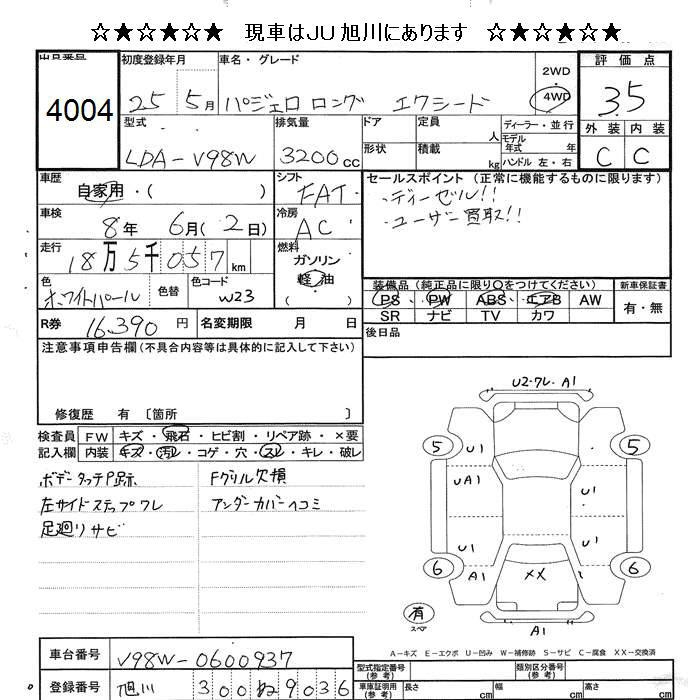 ☆★☆★☆ 現車はJU旭川にあります ☆★☆★☆
出品番号
4004
初度登録年月
25 5月
車名・グレード
パジェロ ロング エクシード
2WD
4WD
評価点
3.5
外装 内装
C C
型式
LDA-V98W
排気量
3200cc
ドア
形状
定員
人
積載
kg
ディーラー・並行
モデル
年式 年
ハンドル 左・右
車歴
自家用・( )
シフト
FAT
セールスポイント (正常に機能するものに限ります)
・ディーゼル!!
・ユーザー買取!!
車検
8年 6月(2日)
冷房
AC
走行
18万5千057km
燃料
ガソリン
軽油
( )
色
ホワイトパール
色替
色コード
W23
装備品 (純正品に限り○をつけてください)
PS PW ABS エアB AW
SR ナビ TV カワ
新車保証書
有・無
R券 16,390円
名変期限 月 日
後日品
注意事項申告欄 (不具合内容等は具体的に記入して下さい)
修復歴 有 〔箇所 〕
検査員
記入欄
FW キズ・飛石・ヒビ割・リペア跡・×要
内装 キズ・汚レ・コゲ・穴・スレ・キレ・破レ
ボデータッチP跡
Fグリル欠損
左サイドステップワレ
アンダーカバーヘコミ
足廻りサビ
U2・ワレ・A1
5
U1
5
UA1
U1
U1
U1
6
A1
××
6
有
スペア
A1
A-キズ E-エクボ U-凹み W-補修跡 S-サビ C-腐食 XX-交換済
車台番号
V98W-0600937
登録番号
旭川 300 ね 9036
型式指定番号
(参考)
類別区分番号
(参考)
車庫証明用
(参考)
長さ cm
幅 cm
高さ cm